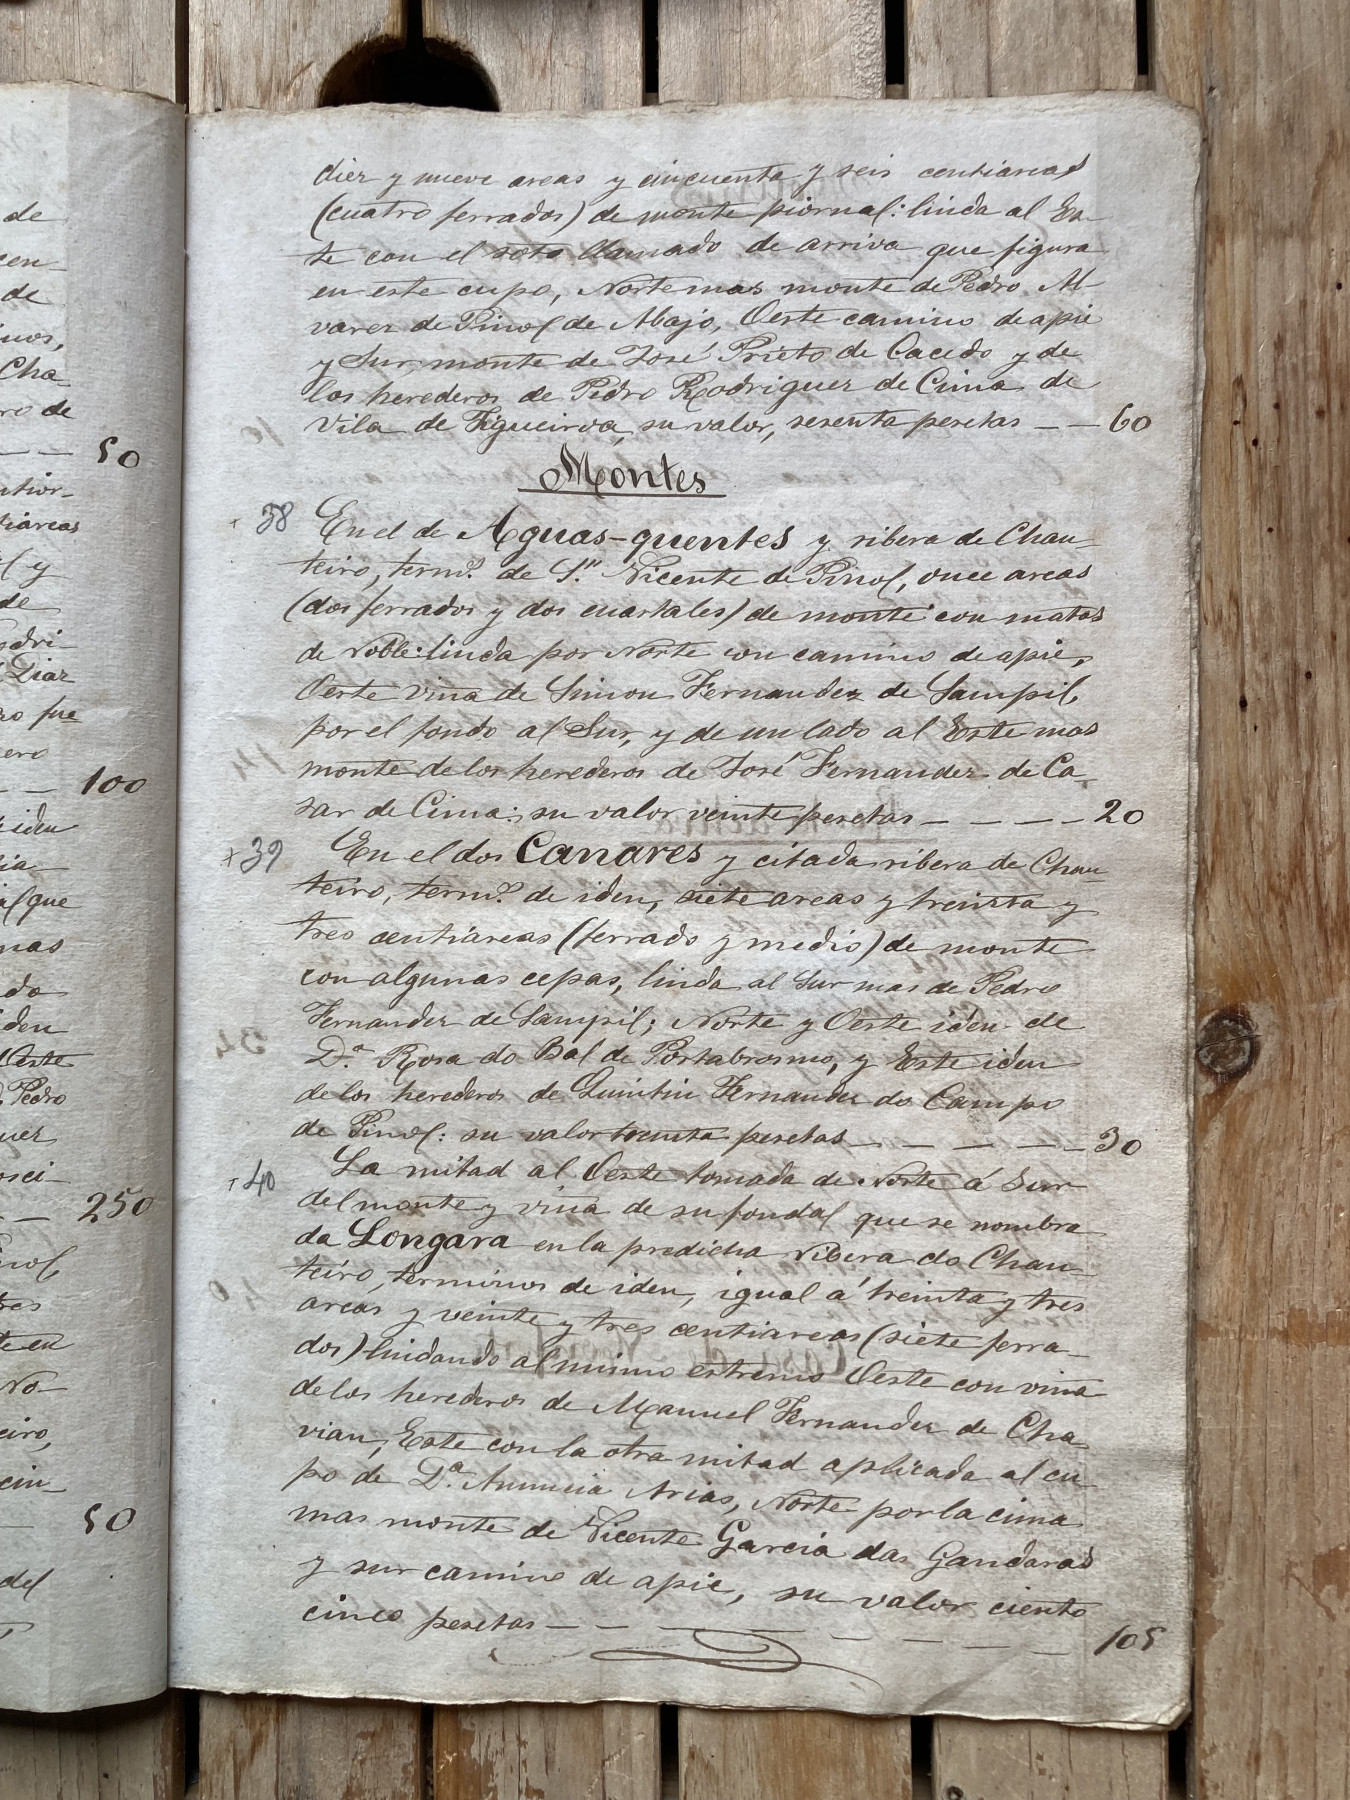 de
cen-
de
nos,
Cha
ro de
— — 50
ntior-
tiáreas
l y
de
odri-
Diaz
ro fue
ero
— — 100
iden
lia
al que
mas
do
iden
Oeste
Pedro
uez
osci-
— — 250
inol,
tres
te en
No-
eiro,
cin-
— 50
del
diez y nueve areas y cincuenta y seis centiareas
(cuatro ferrados) de monte piornal: linda al Es-
te con el soto llamado de arriva que figura
en este cupo, Norte mas monte de Pedro Al-
varez de Pinol de Abajo, Oeste camino de apie
y Sur monte de José Prieto de Cacedo y de
los herederos de Pedro Rodriguez de Cima de
Vila de Figueiroa, su valor, sesenta pesetas — — 60
Montes
+ 38 En el de Aguas-quentes y ribera de Chan-
teiro, term.º de S.n Vicente de Pinol, once areas
(dos ferrados y dos cuartales) de monte con matas
de roble: linda por Norte con camino de apie,
Oeste viña de Simon Fernandez de Sampil,
por el fondo al Sur, y de un lado al Este mas
monte de los herederos de José Fernandez de Ca-
sar de Cima; su valor veinte pesetas — — — — 20
+ 39 En el dos Canares y citada ribera de Chan-
teiro, term.º de iden, siete areas y treinta y
tres centiareas (ferrado y medio) de monte
con algunas cepas, linda al Sur mas de Pedro
Fernandez de Sampil; Norte y Oeste iden de
D.ª Rosa do Bal de Portabrosmo, y Este iden
de los herederos de Quintin Fernandez do Campo
de Pinol: su valor treinta pesetas — — — — — 30
+ 40 La mitad al Oeste tomada de Norte á Sur
del monte y viña de su fondal que se nombra
da Longara en la predicha ribera do Chan-
teiro, terminos de iden, igual á treinta y tres
areas y veinte y tres centiareas (siete ferra-
dos) lindando al mismo estremo Oeste con viña
de los herederos de Manuel Fernandez de Cha-
vian, Este con la otra mitad aplicada al cu-
po de D.ª Anuncia Arias, Norte por la cima
mas monte de Vicente Garcia das Gandaras
y sur camino de apie, su valor ciento
cinco pesetas — — — — — — — — — 105